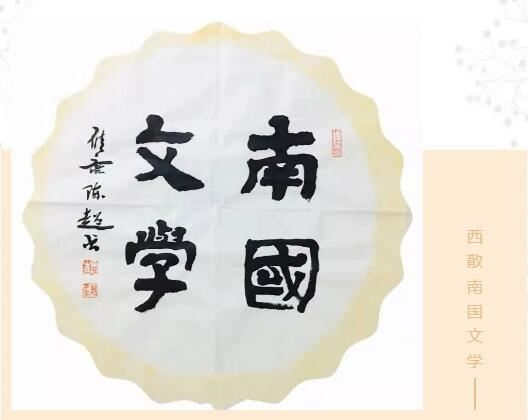 南國
文學
陈超书
西散南国文学